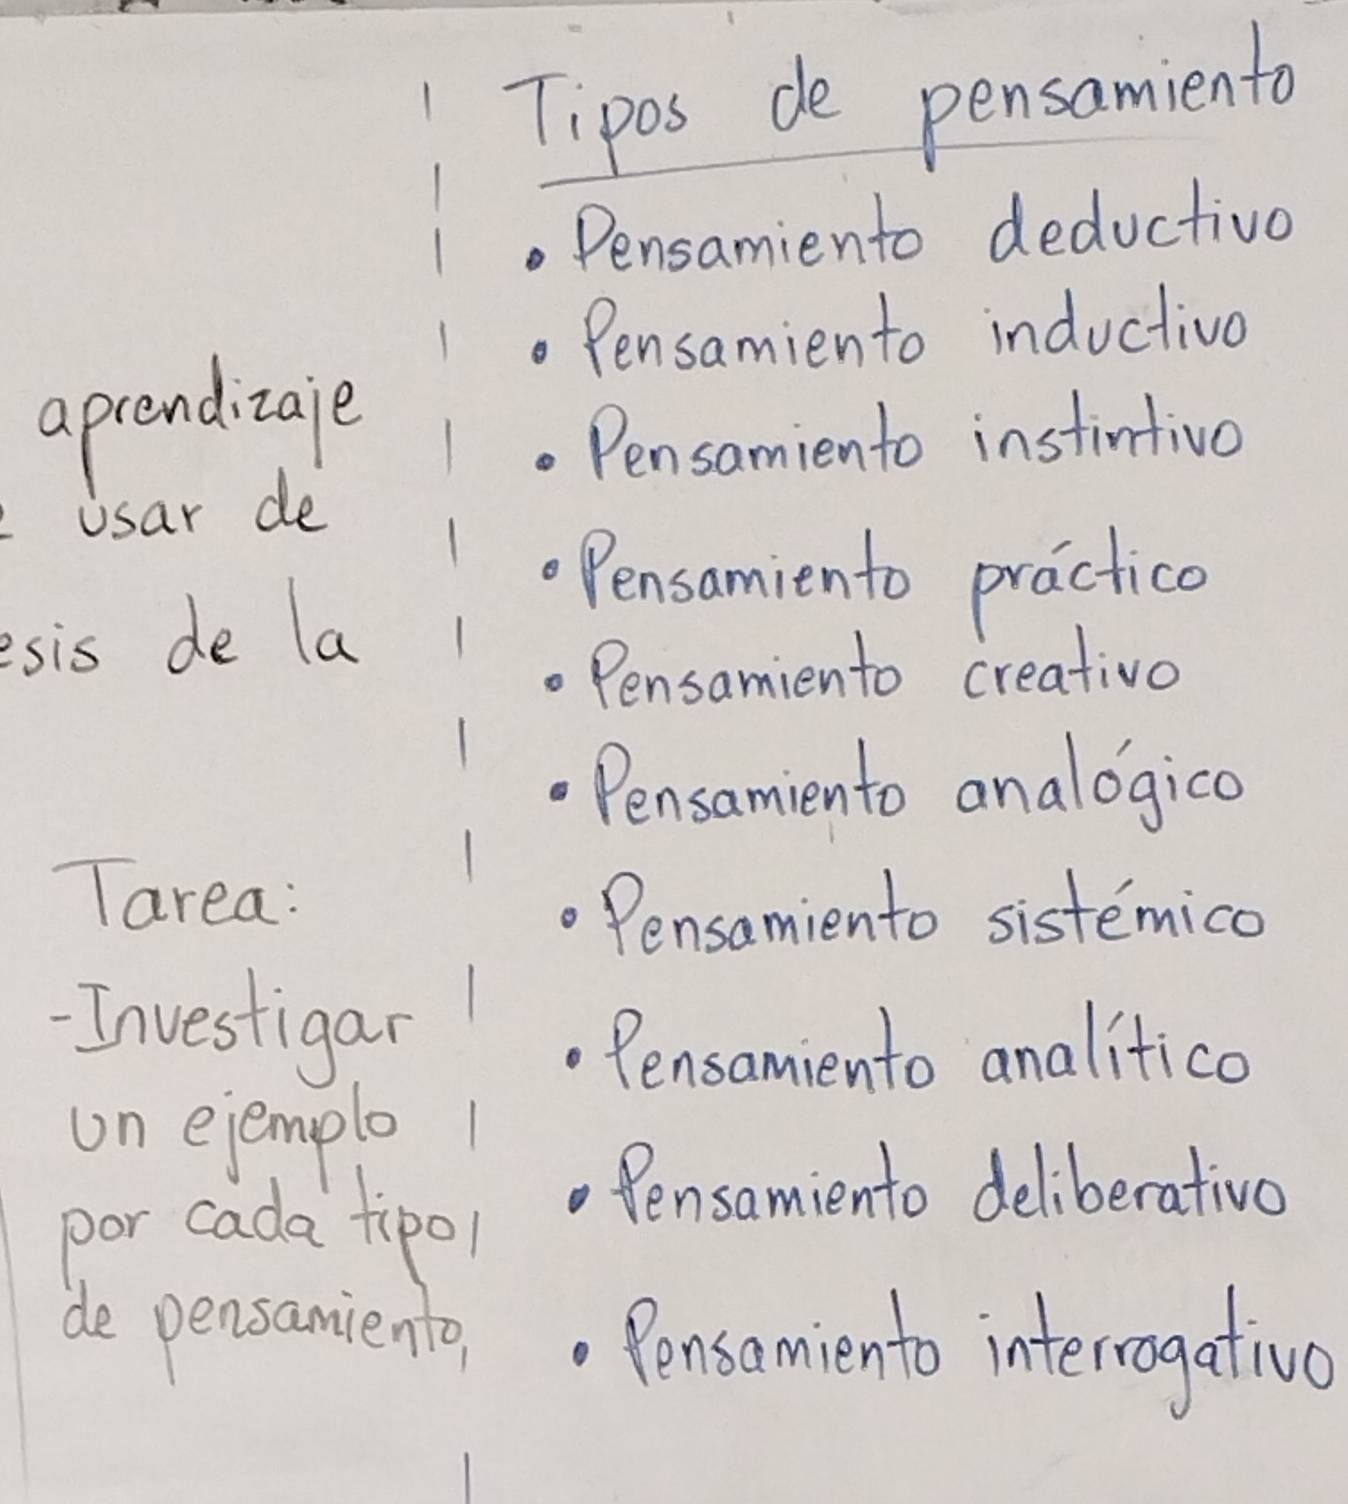 aprendizaje
usar de
esis de la
Tarea:
-Investigar
un ejemplo
por cada tipo
de pensamiento
Tipos de pensamiento
• Pensamiento deductivo
• Pensamiento inductivo
• Pensamiento instintivo
• Pensamiento práctico
• Pensamiento creativo
• Pensamiento analógico
• Pensamiento sistémico
• Pensamiento analítico
• Pensamiento deliberativo
• Pensamiento interrogativo